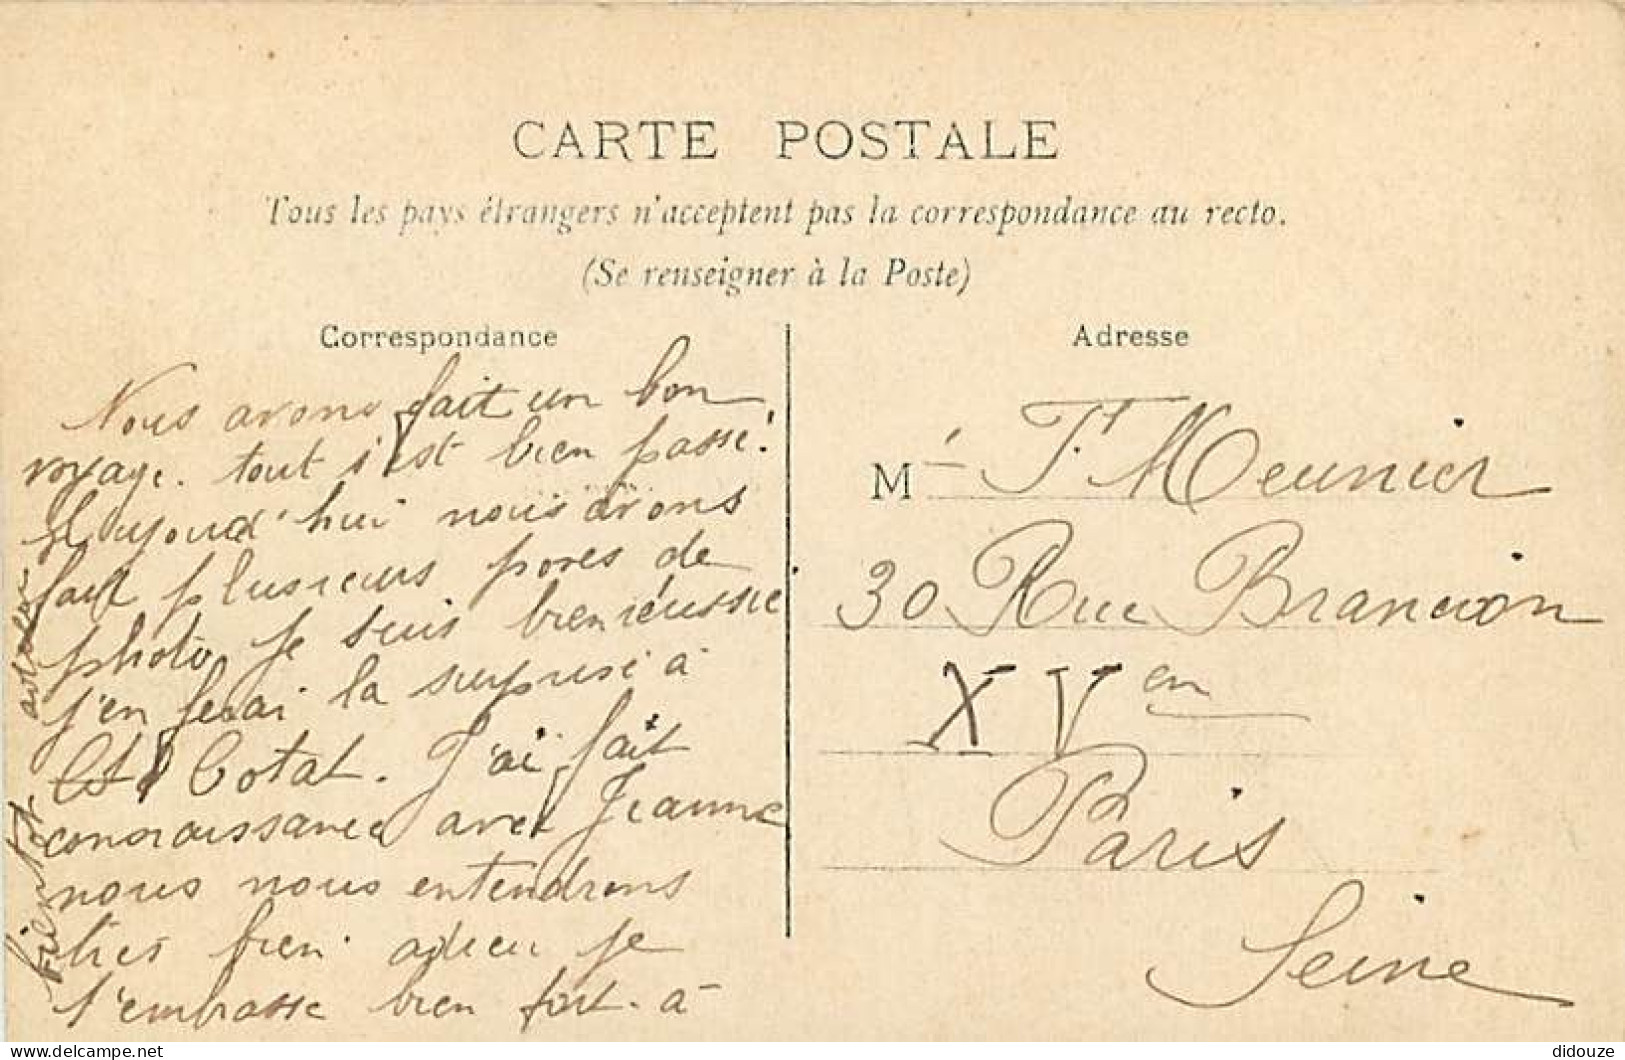 CARTE POSTALE
Tous les pays étrangers n'acceptent pas la correspondance au recto.
(Se renseigner à la Poste)
Correspondance
Nous avons fait un bon
voyage. tout s'est bien passé.
Aujourd'hui nous avons
fait plusieurs poses de
photo je suis bien réussie
j'en ferai la surprise à
Cotat. J'ai fait
connaissance avec Jeanne
nous nous entendrons
très bien. adieu je
t'embrasse bien fort. à
bientôt
Adresse
M Meunier
30 Rue Brancion
XV en
Paris
Seine
delcampe.net
didouze